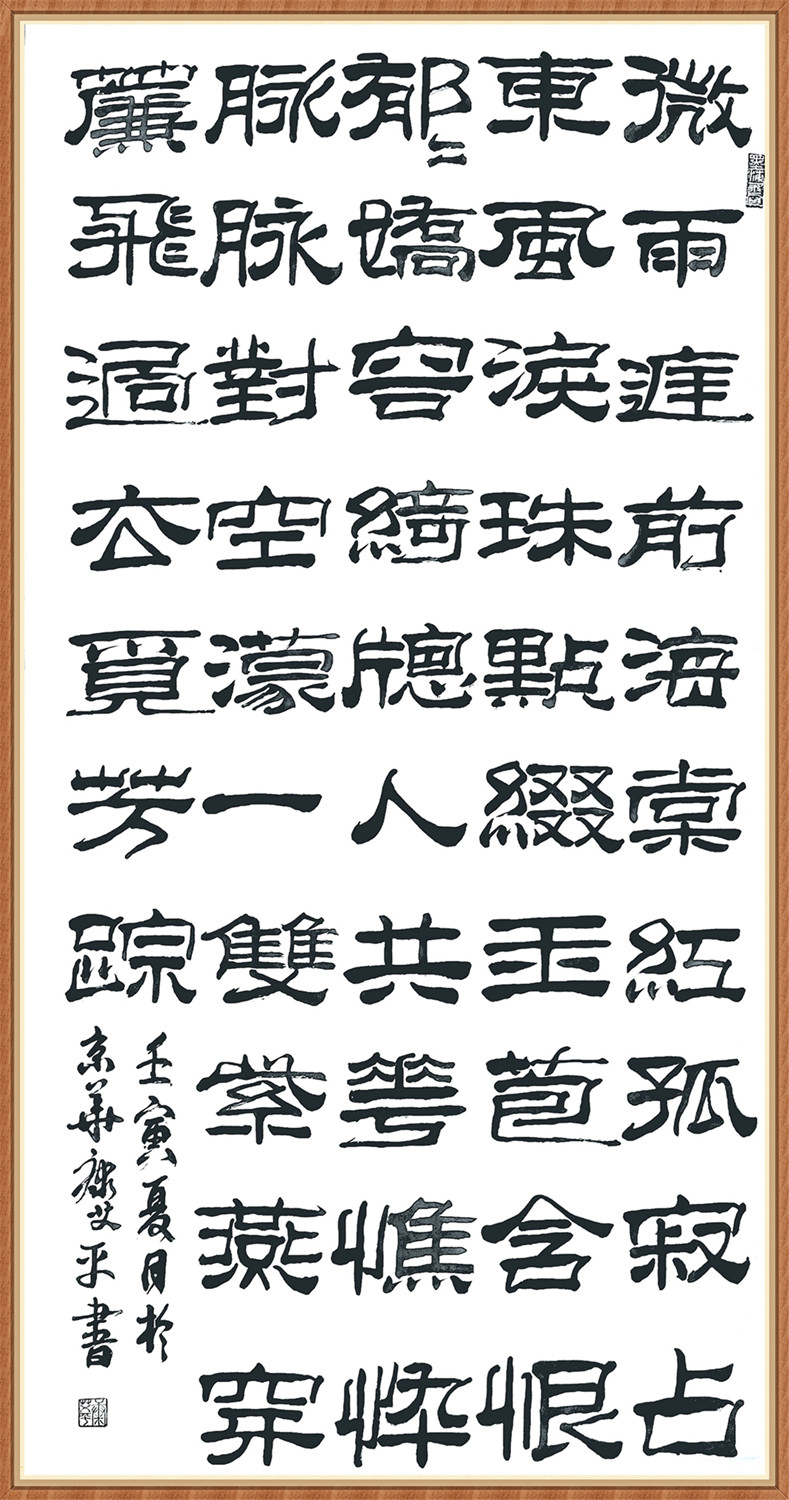 微雨庭前海棠紅孤寂占
東風淚珠點綴玉苞含恨
郁〻嬌容綺牕人共花憔悴
脉脉對空濛一雙紫燕穿
簾飛過去覓芳踪
壬寅夏日於
京華康艾平書